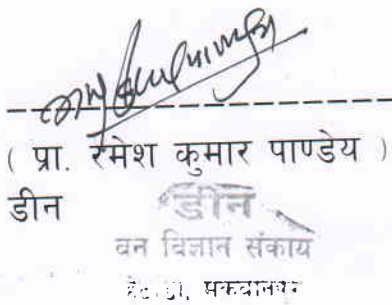 ( प्रा. रमेश कुमार पाण्डेय )
डीन
डीन
वन विज्ञान संकाय
मकवानपुर